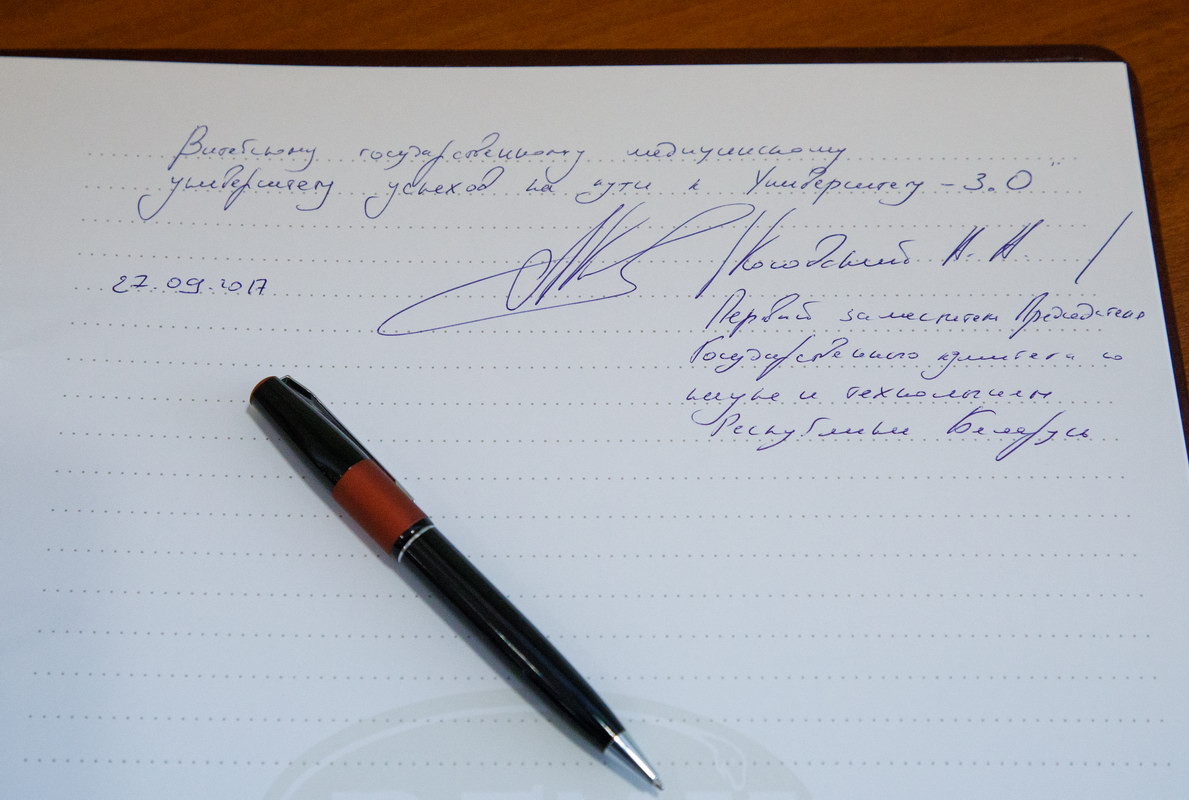 Витебскому государственному медицинскому
университету успехов на пути к Университету - 3.0"
/Косовский А. А. /
27.09.2017
Первый заместитель Председателя
Государственного комитета по
науке и технологиям
Республики Беларусь